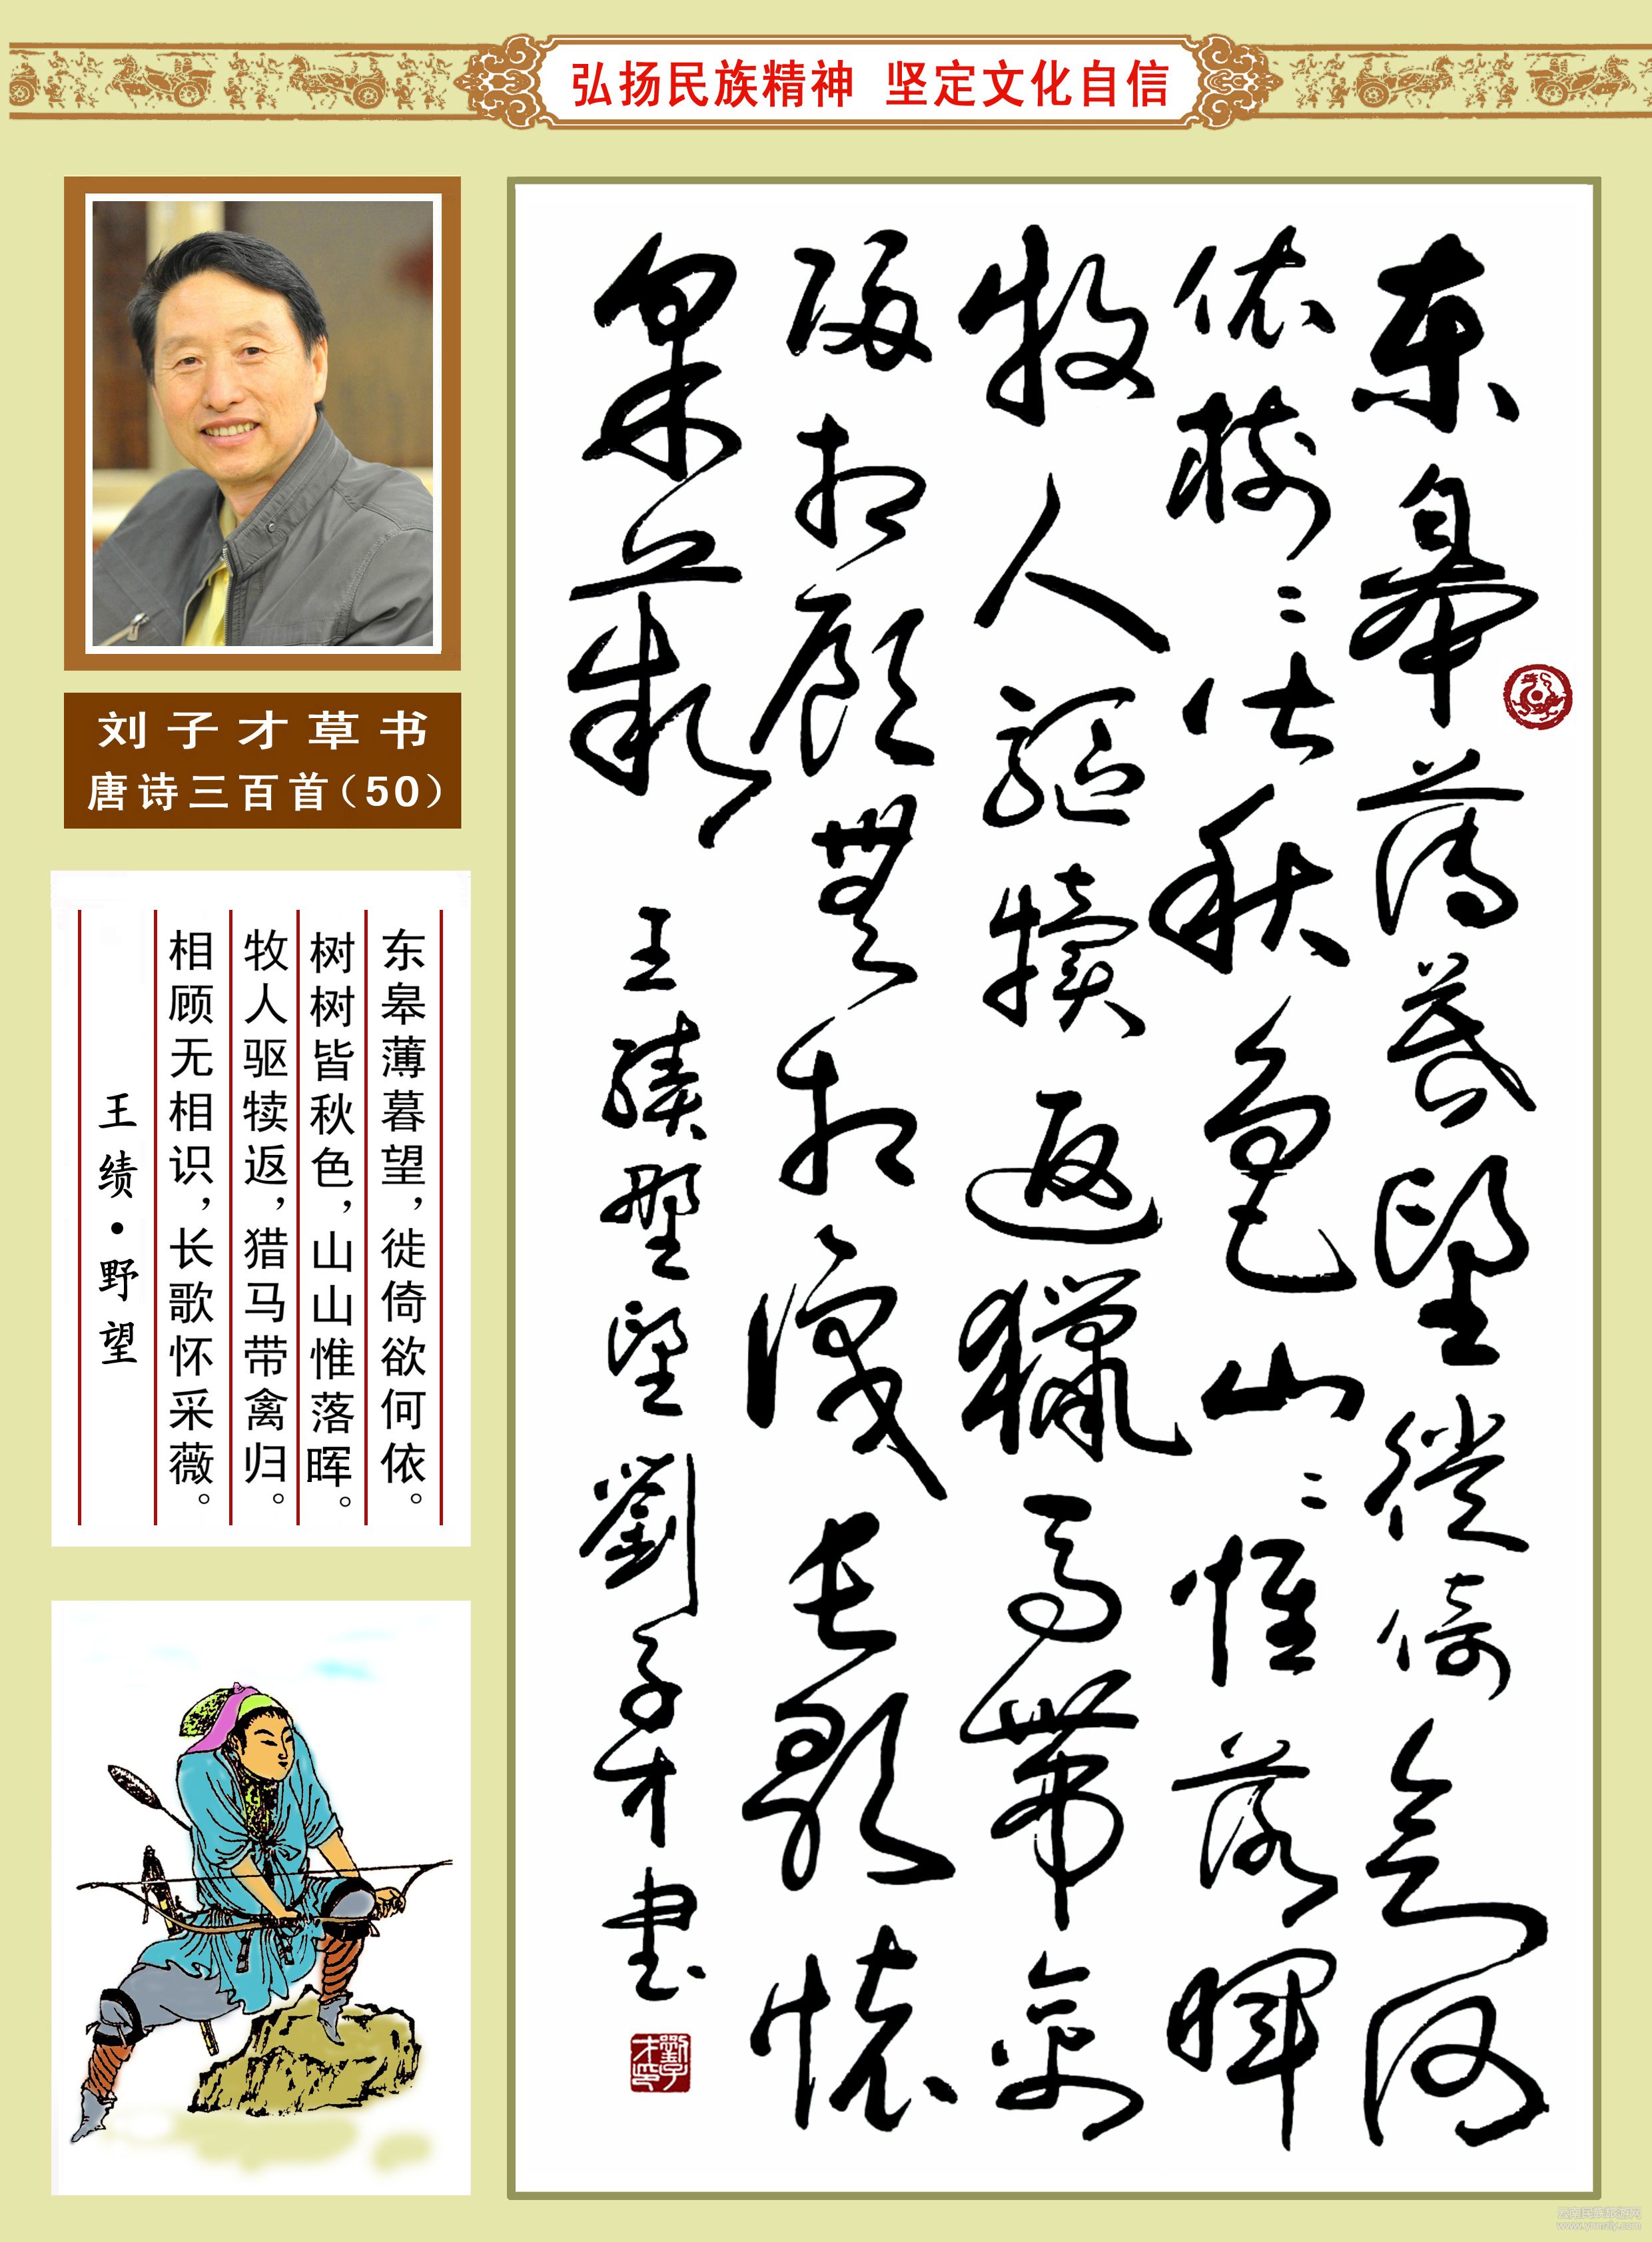 弘扬民族精神 坚定文化自信
刘子才草书
唐诗三百首（50）
东皋薄暮望，徙倚欲何依。
树树皆秋色，山山惟落晖。
牧人驱犊返，猎马带禽归。
相顾无相识，长歌怀采薇。
王绩·野望
東皋薄暮望徙倚欲何
依樹〻皆秋色山〻惟落暉
牧人驅犢返獵馬帶禽
歸相顧無相識長歌懷
采薇 王績野望 劉子才書
劉子才印